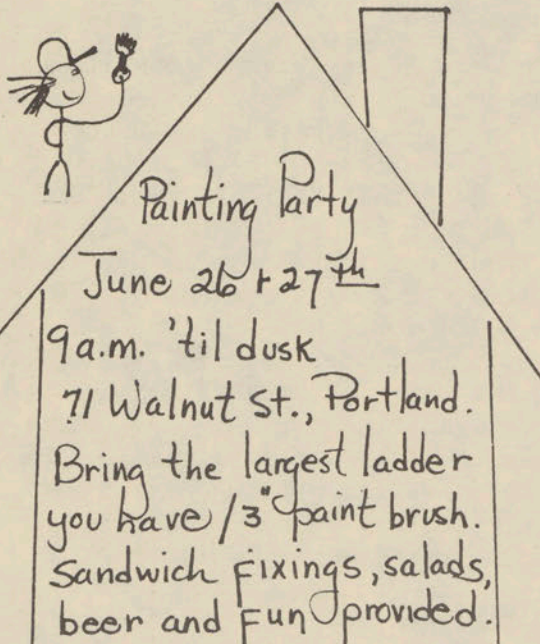 Painting Party
June 26 + 27th
9 a.m. 'til dusk
71 Walnut St., Portland.
Bring the largest ladder
you have / 3" paint brush.
Sandwich fixings, salads,
beer and fun provided.